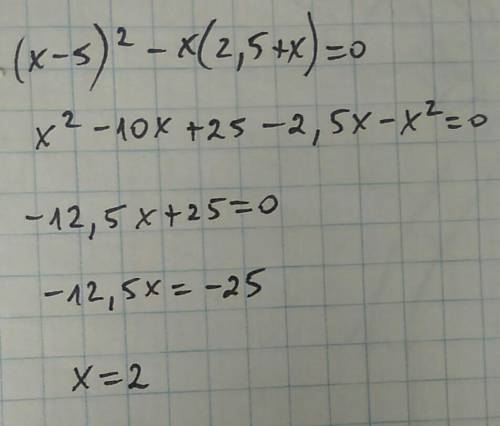 (x-5)² - x(2,5+x)=0
x² -10x +25 -2,5x -x²=0
-12,5x+25=0
-12,5x = -25
x=2